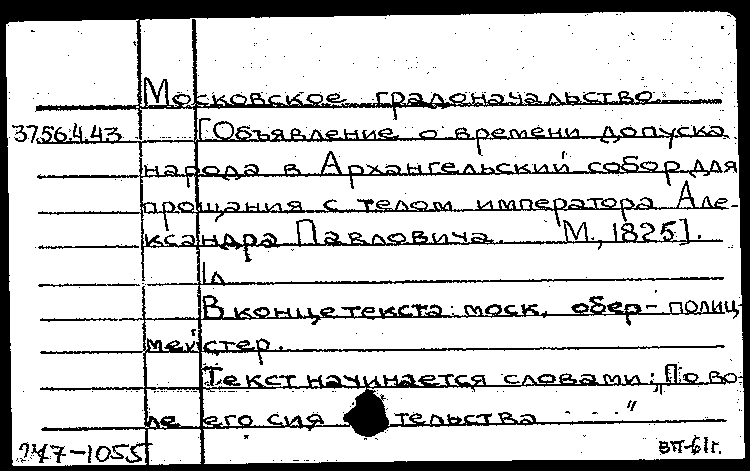 Московское градоначальство
37.56.4.43 [Объявление о времени допуска
народа в Архангельский собор для
прощания с телом императора Але-
ксандра Павловича. М., 1825].
1л
В конце текста: моск. обер-полиц-
мейстер.
Текст начинается словами: "По во-
ле его сия тельства ..."
747-1055 вп-61г.